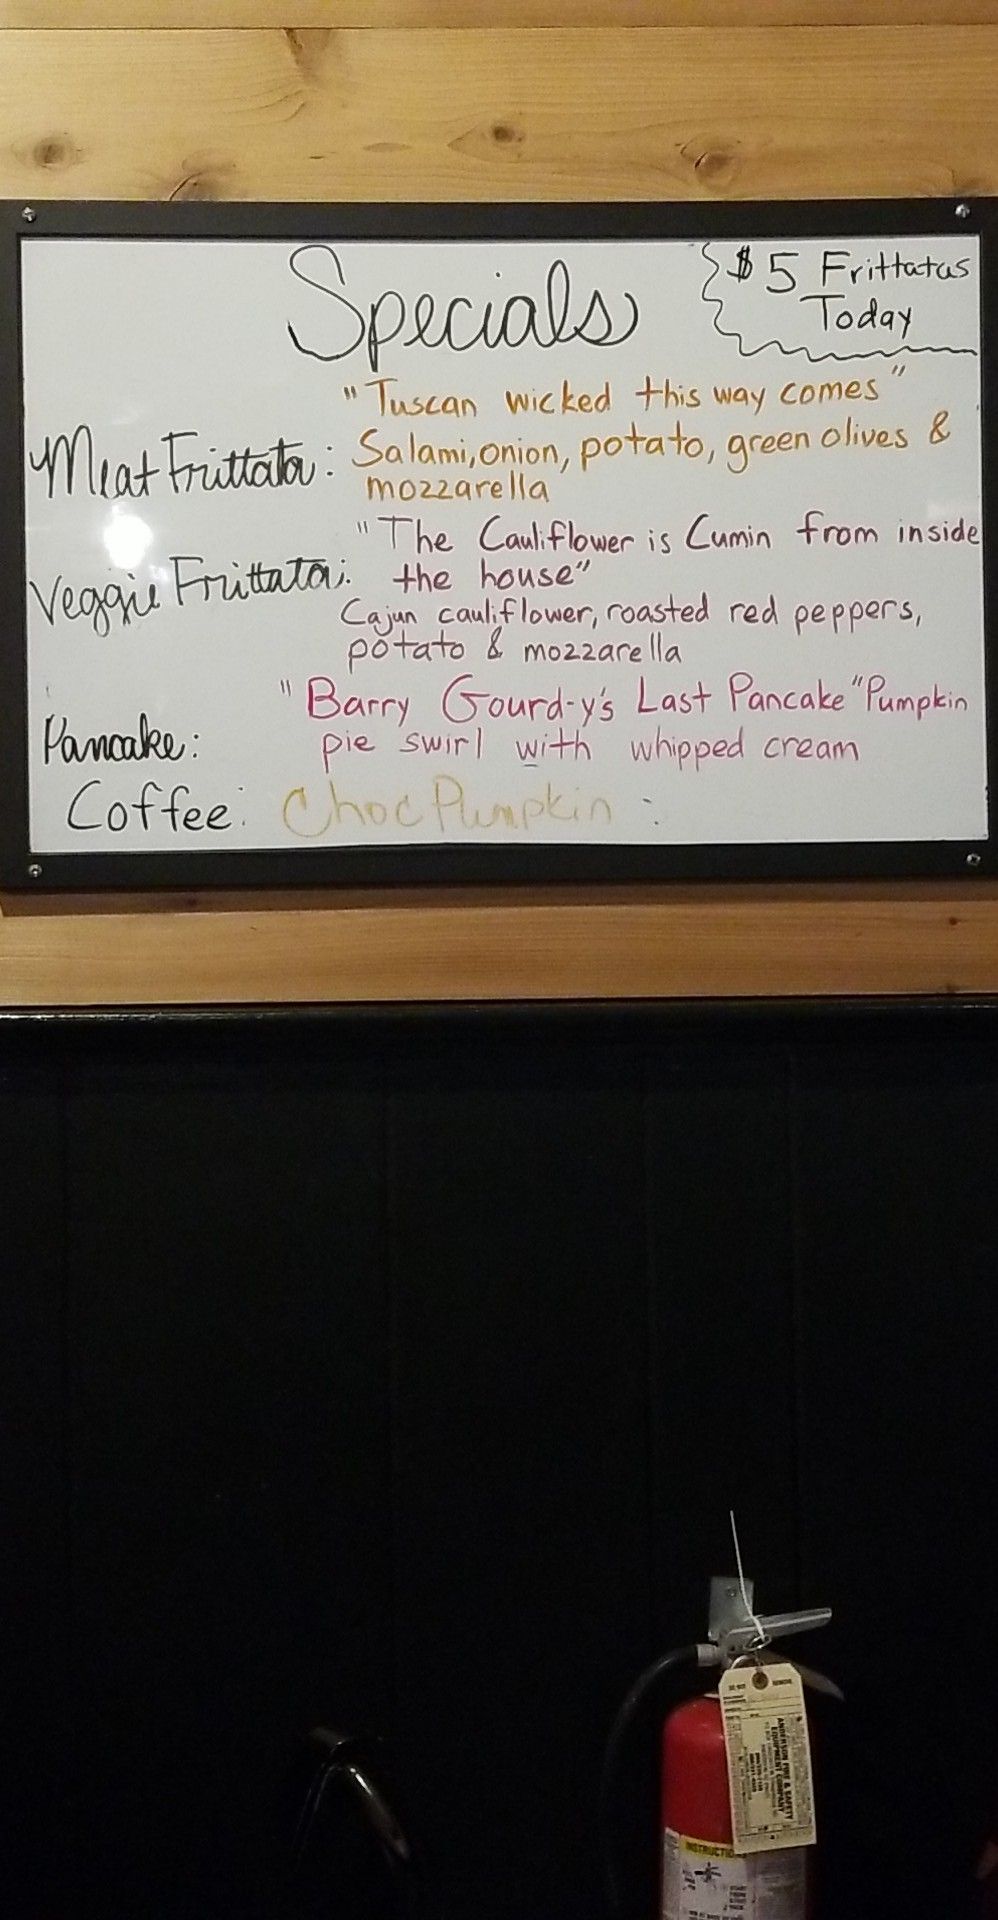 Specials
$5 Frittatas
Today
"Tuscan wicked this way comes"
Meat Frittata: Salami, onion, potato, green olives &
mozzarella
"The Cauliflower is Cumin from inside
Veggie Frittata: the house"
Cajun cauliflower, roasted red peppers,
potato & mozzarella
"Barry Gourd-y's Last Pancake" Pumpkin
Pancake: pie swirl with whipped cream
Coffee: Choc Pumpkin :
ANDERSON FIRE & SAFETY
EQUIPMENT COMPANY
INSTRUCTIONS